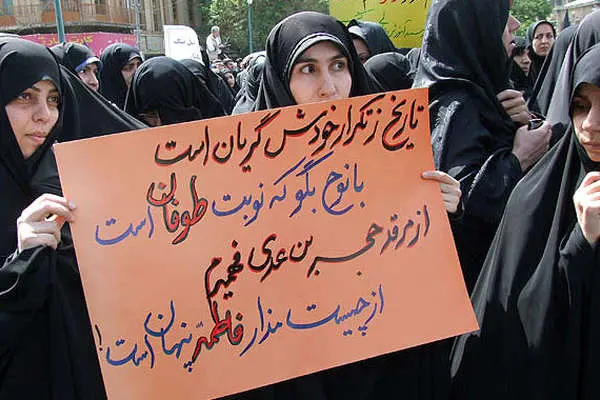 تاریخ ز تکرار خودش گریان است
با نوح بگو که نوبت طوفان است
از مرقد حجر بن عدی فهمیدم
از چیست مزار فاطمه پنهان است!